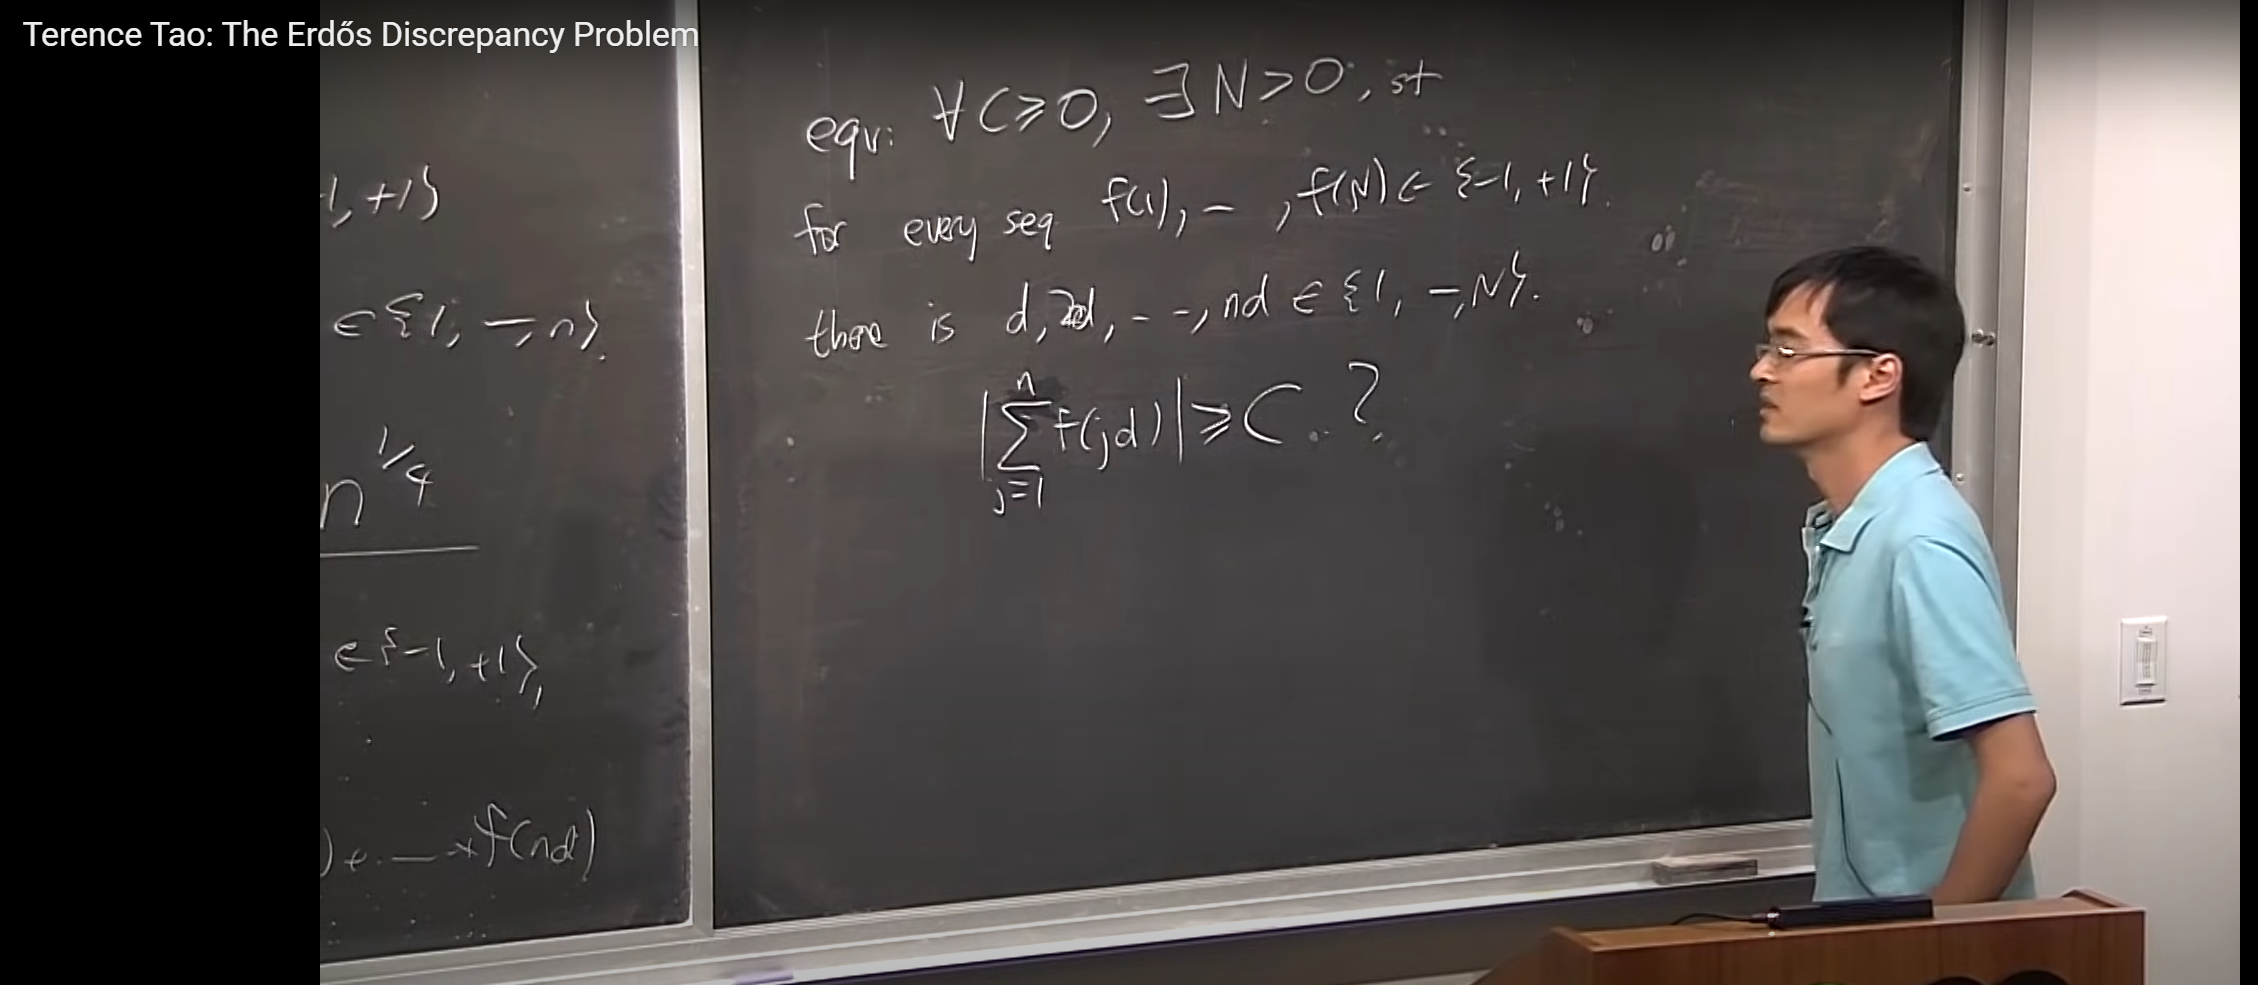 Terence Tao: The Erdős Discrepancy Problem
1, +1}
∈ {1, –, n}.
n^{1/4}
∈ {-1, +1},
) + . — + f(nd)
eqv: ∀ C ≥ 0, ∃ N > 0, st
for every seq f(1), – , f(N) ∈ {-1, +1}.
there is d, 2d, - -, nd ∈ {1, –, N}.
|∑_{j=1}^{n} f(jd)| ≥ C. ?